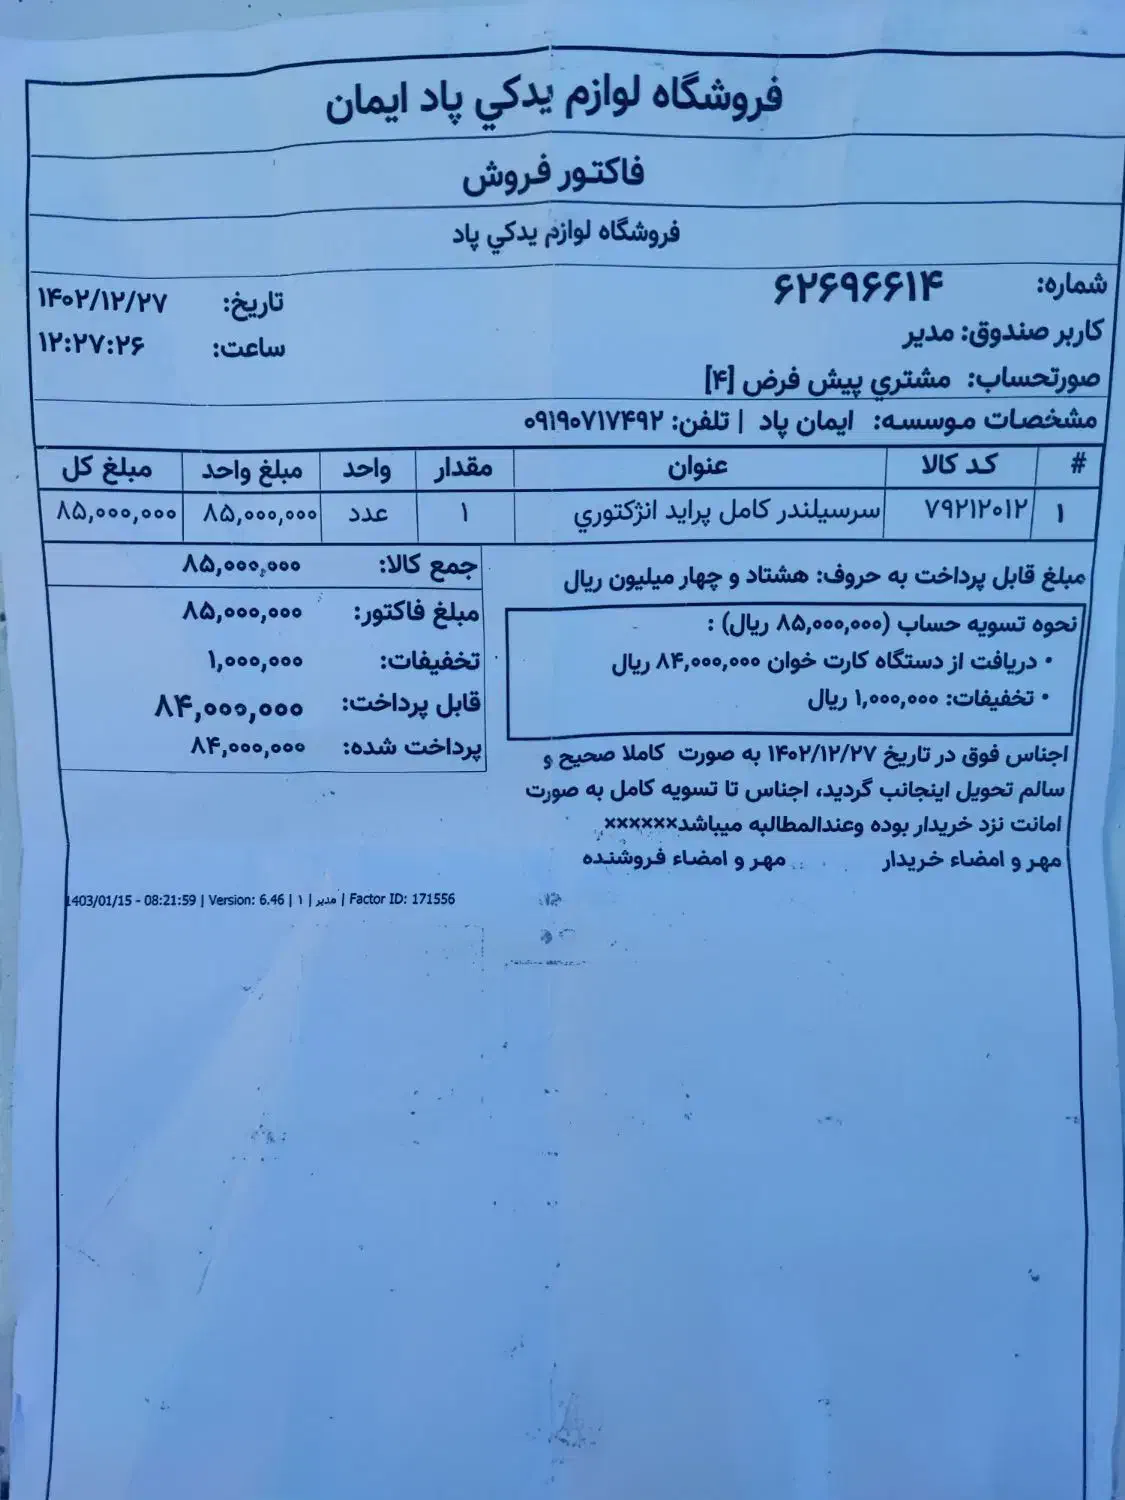 فروشگاه لوازم یدکي پاد ایمان
فاکتور فروش
فروشگاه لوازم یدکي پاد
شماره: ۶۲۶۹۶۶۱۴
تاریخ: ۱۴۰۲/۱۲/۲۷
کاربر صندوق: مدیر
ساعت: ۱۲:۲۷:۲۶
صورتحساب: مشتري پیش فرض [۴]
مشخصات موسسه: ایمان پاد | تلفن: ۰۹۱۹۰۷۱۷۴۹۲
# کد کالا عنوان مقدار واحد مبلغ واحد مبلغ کل
۱ ۷۹۲۱۲۰۱۲ سرسیلندر کامل پراید انژکتوري ۱ عدد ۸۵,۰۰۰,۰۰۰ ۸۵,۰۰۰,۰۰۰
مبلغ قابل پرداخت به حروف: هشتاد و چهار میلیون ریال
نحوه تسویه حساب (۸۵,۰۰۰,۰۰۰ ریال) :
• دریافت از دستگاه کارت خوان ۸۴,۰۰۰,۰۰۰ ریال
• تخفیفات: ۱,۰۰۰,۰۰۰ ریال
جمع کالا: ۸۵,۰۰۰,۰۰۰
مبلغ فاکتور: ۸۵,۰۰۰,۰۰۰
تخفیفات: ۱,۰۰۰,۰۰۰
قابل پرداخت: ۸۴,۰۰۰,۰۰۰
پرداخت شده: ۸۴,۰۰۰,۰۰۰
اجناس فوق در تاریخ ۱۴۰۲/۱۲/۲۷ به صورت کاملا صحیح و
سالم تحویل اینجانب گردید، اجناس تا تسویه کامل به صورت
امانت نزد خریدار بوده وعندالمطالبه میباشد××××××
مهر و امضاء خریدار مهر و امضاء فروشنده
1403/01/15 - 08:21:59 | Version: 6.46 | ۱ | مدیر | Factor ID: 171556